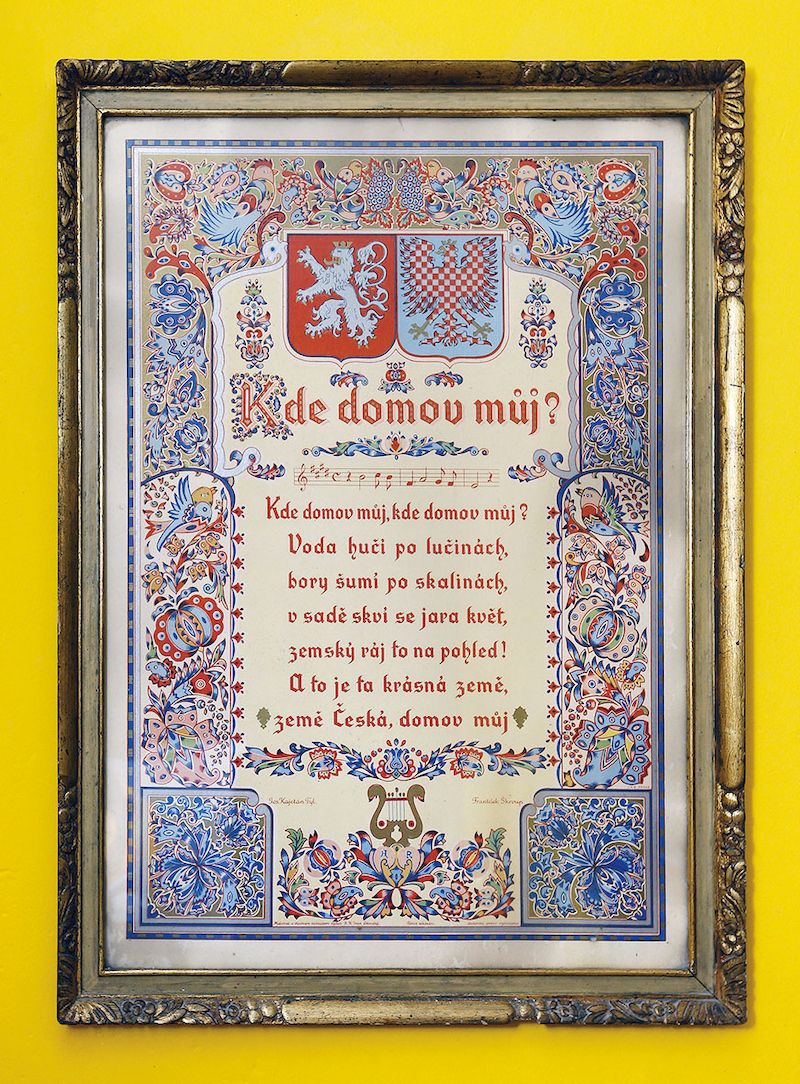 Kde domov můj?
Kde domov můj, kde domov můj?
Voda hučí po lučinách,
bory šumí po skalinách,
v sadě skví se jara květ,
zemský ráj to na pohled!
A to je ta krásná země,
země Česká, domov můj
Jos. Kajetán Tyl.
František Škroup